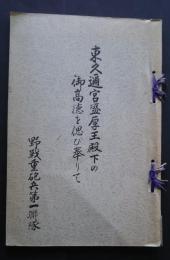 東久邇宮盛厚王殿下の
御高徳を偲び奉りて
野戦重砲兵第一聯隊